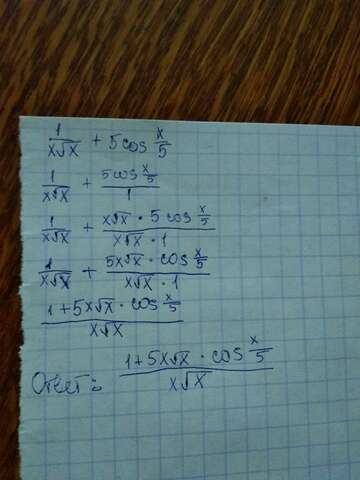 1/(x√x) + 5cos x/5
1/(x√x) + (5cos x/5)/1
1/(x√x) + (x√x · 5cos x/5)/(x√x · 1)
1/(x√x) + (5x√x · cos x/5)/(x√x · 1)
(1+5x√x · cos x/5)/(x√x)
Ответ: (1+5x√x · cos x/5)/(x√x)